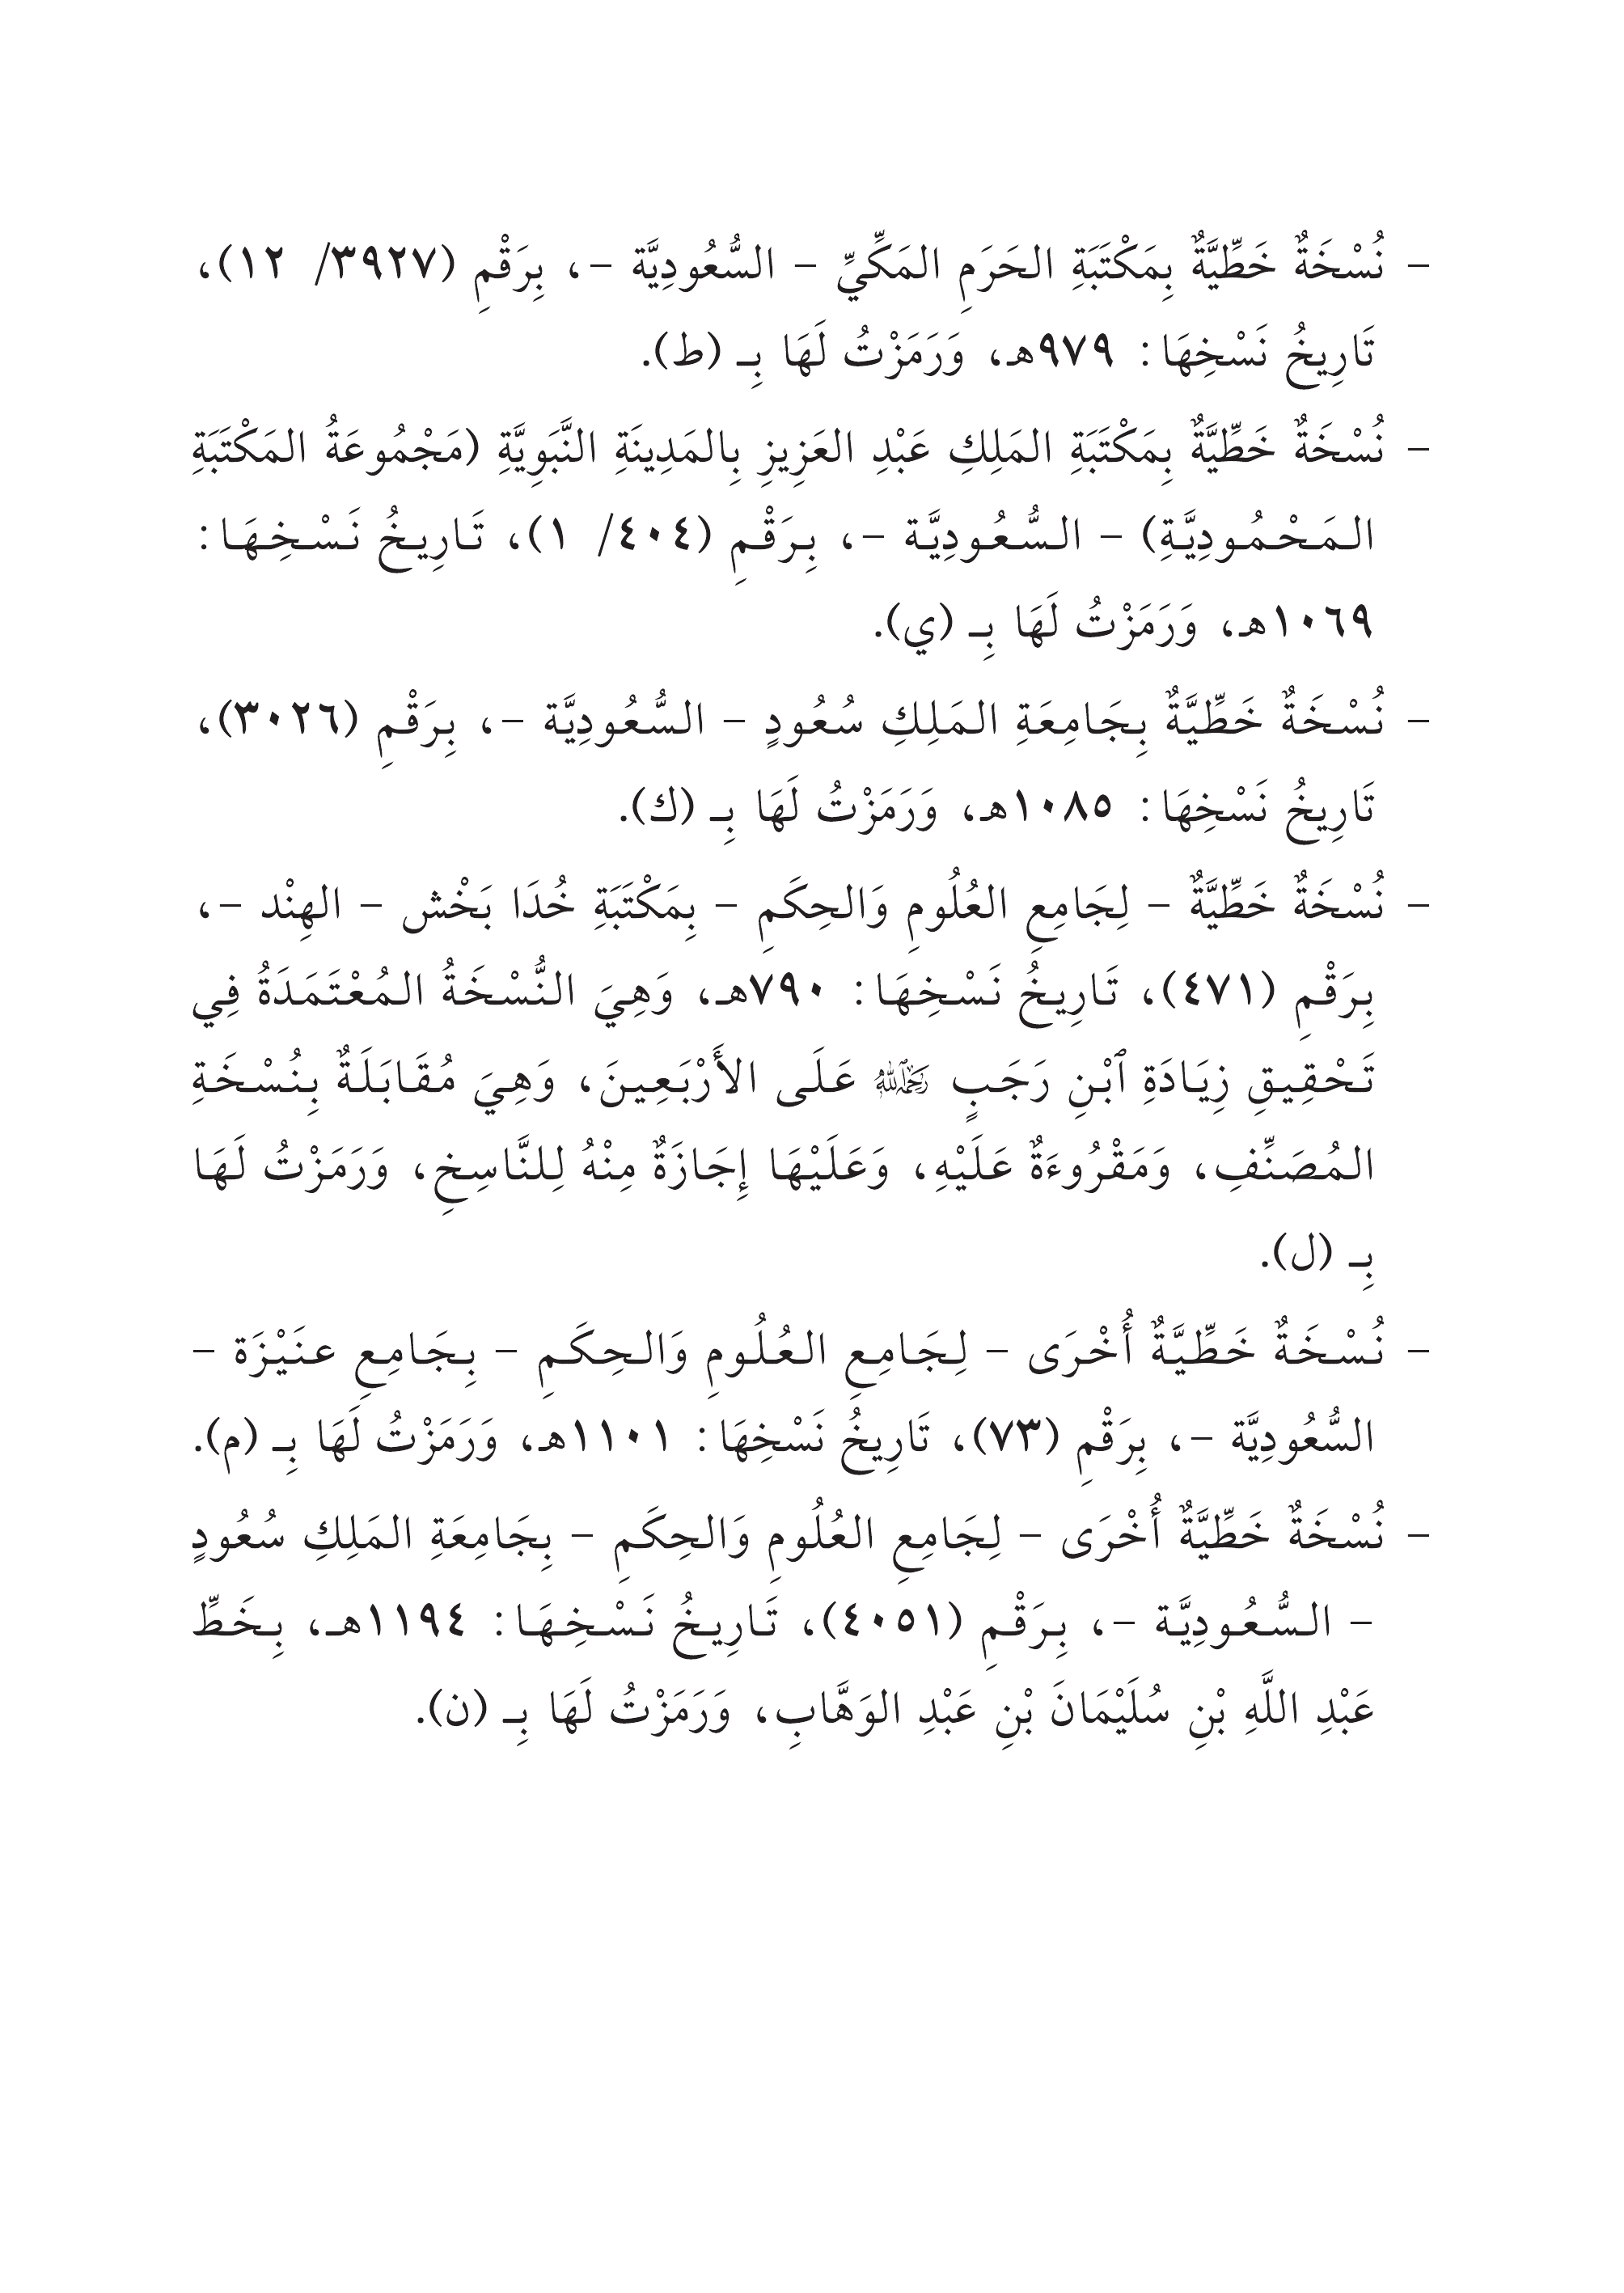 - نُسْخَةٌ خَطِّيَّةٌ بِمَكْتَبَةِ الحَرَمِ المَكِّيِّ - السُّعُودِيَّة -، بِرَقْمِ (٣٩٢٧/ ١٢)،
تَارِيخُ نَسْخِهَا: ٩٧٩هـ، وَرَمَزْتُ لَهَا بِـ (ط).
- نُسْخَةٌ خَطِّيَّةٌ بِمَكْتَبَةِ المَلِكِ عَبْدِ العَزِيزِ بِالمَدِينَةِ النَّبَوِيَّةِ (مَجْمُوعَةُ المَكْتَبَةِ
المَحْمُودِيَّةِ) - السُّعُودِيَّة -، بِرَقْمِ (٤٠٤/ ١)، تَارِيخُ نَسْخِهَا:
١٠٦٩هـ، وَرَمَزْتُ لَهَا بِـ (ي).
- نُسْخَةٌ خَطِّيَّةٌ بِجَامِعَةِ المَلِكِ سُعُودٍ - السُّعُودِيَّة -، بِرَقْمِ (٣٠٢٦)،
تَارِيخُ نَسْخِهَا: ١٠٨٥هـ، وَرَمَزْتُ لَهَا بِـ (ك).
- نُسْخَةٌ خَطِّيَّةٌ - لِجَامِعِ العُلُومِ وَالحِكَمِ - بِمَكْتَبَةِ خُدَا بَخْش - الهِنْد -،
بِرَقْمِ (٤٧١)، تَارِيخُ نَسْخِهَا: ٧٩٠هـ، وَهِيَ النُّسْخَةُ المُعْتَمَدَةُ فِي
تَحْقِيقِ زِيَادَةِ ٱبْنِ رَجَبٍ رَحِمَهُ اللَّهُ عَلَى الأَرْبَعِينَ، وَهِيَ مُقَابَلَةٌ بِنُسْخَةِ
المُصَنِّفِ، وَمَقْرُوءَةٌ عَلَيْهِ، وَعَلَيْهَا إِجَازَةٌ مِنْهُ لِلنَّاسِخِ، وَرَمَزْتُ لَهَا
بِـ (ل).
- نُسْخَةٌ خَطِّيَّةٌ أُخْرَى - لِجَامِعِ العُلُومِ وَالحِكَمِ - بِجَامِعِ عنَيْزَة -
السُّعُودِيَّة -، بِرَقْمِ (٧٣)، تَارِيخُ نَسْخِهَا: ١١٠١هـ، وَرَمَزْتُ لَهَا بِـ (م).
- نُسْخَةٌ خَطِّيَّةٌ أُخْرَى - لِجَامِعِ العُلُومِ وَالحِكَمِ - بِجَامِعَةِ المَلِكِ سُعُودٍ
- السُّعُودِيَّة -، بِرَقْمِ (٤٠٥١)، تَارِيخُ نَسْخِهَا: ١١٩٤هـ، بِخَطِّ
عَبْدِ اللَّهِ بْنِ سُلَيْمَانَ بْنِ عَبْدِ الوَهَّابِ، وَرَمَزْتُ لَهَا بِـ (ن).